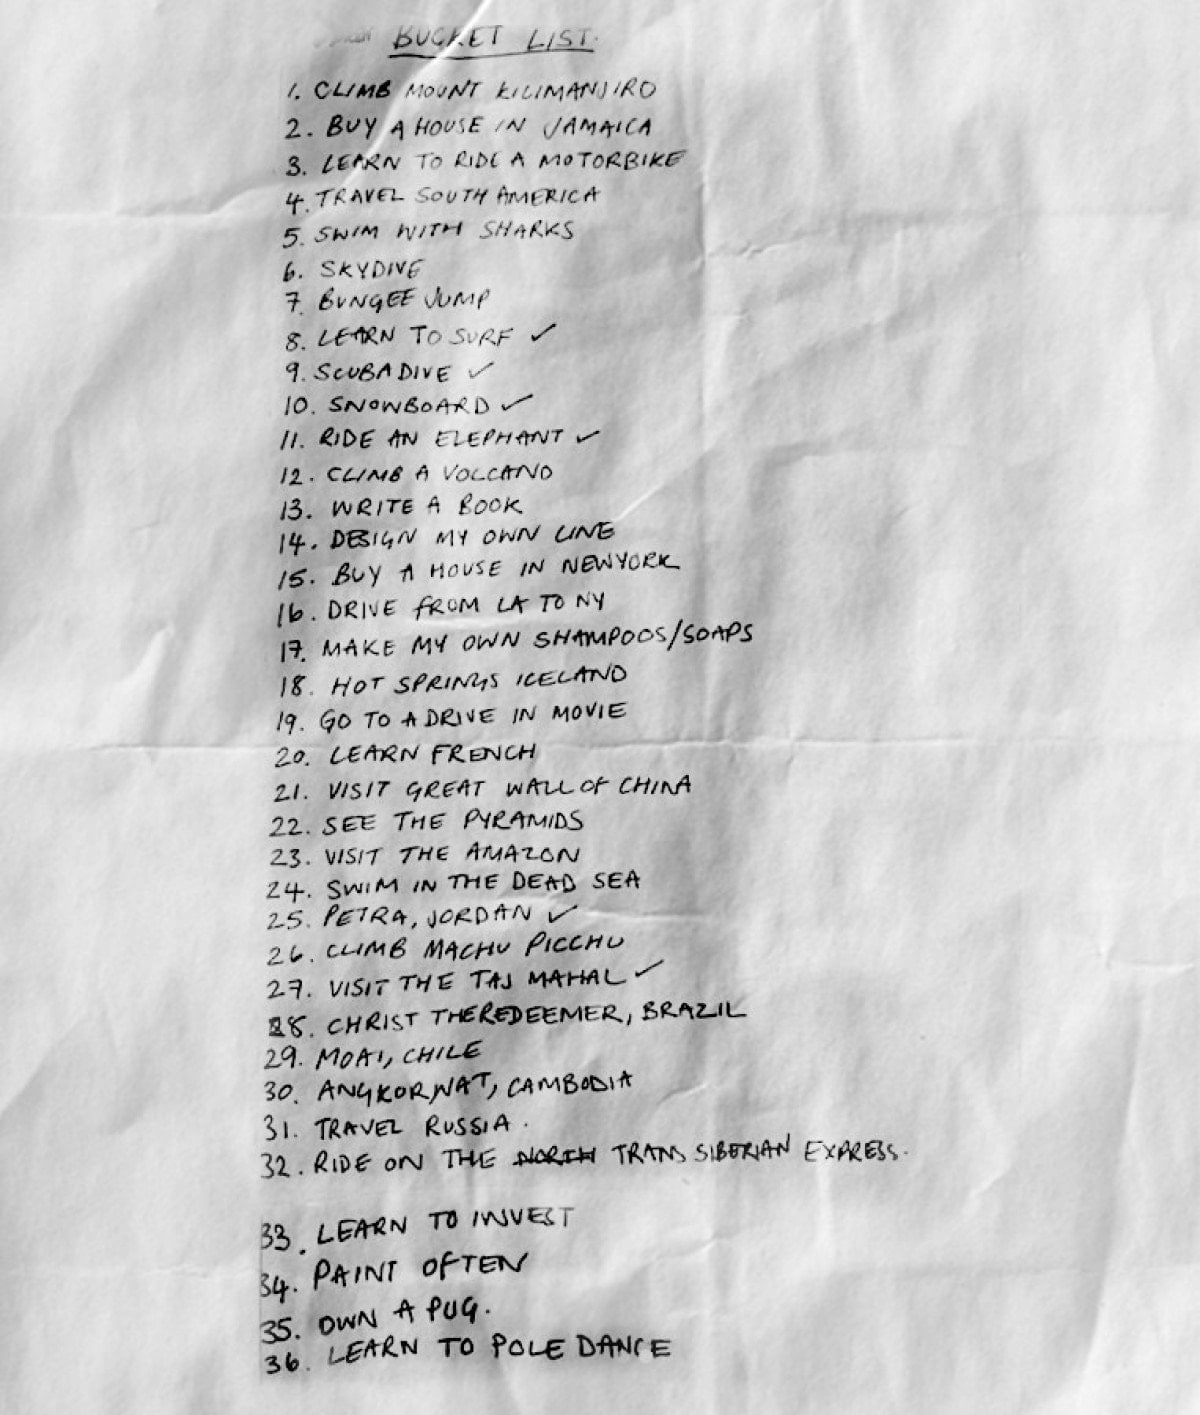 BUCKET LIST.
1. CLIMB MOUNT KILIMANJIRO
2. BUY A HOUSE IN JAMAICA
3. LEARN TO RIDE A MOTORBIKE
4. TRAVEL SOUTH AMERICA
5. SWIM WITH SHARKS
6. SKYDIVE
7. BUNGEE JUMP
8. LEARN TO SURF ✓
9. SCUBA DIVE ✓
10. SNOWBOARD ✓
11. RIDE AN ELEPHANT ✓
12. CLIMB A VOLCANO
13. WRITE A BOOK
14. DESIGN MY OWN LINE
15. BUY A HOUSE IN NEWYORK
16. DRIVE FROM LA TO NY
17. MAKE MY OWN SHAMPOOS/SOAPS
18. HOT SPRINGS ICELAND
19. GO TO A DRIVE IN MOVIE
20. LEARN FRENCH
21. VISIT GREAT WALL OF CHINA
22. SEE THE PYRAMIDS
23. VISIT THE AMAZON
24. SWIM IN THE DEAD SEA
25. PETRA, JORDAN ✓
26. CLIMB MACHU PICCHU
27. VISIT THE TAJ MAHAL ✓
28. CHRIST THE REDEEMER, BRAZIL
29. MOAI, CHILE
30. ANGKOR WAT, CAMBODIA
31. TRAVEL RUSSIA.
32. RIDE ON THE NORTH TRANS SIBERIAN EXPRESS.
33. LEARN TO INVEST
34. PAINT OFTEN
35. OWN A PUG.
36. LEARN TO POLE DANCE